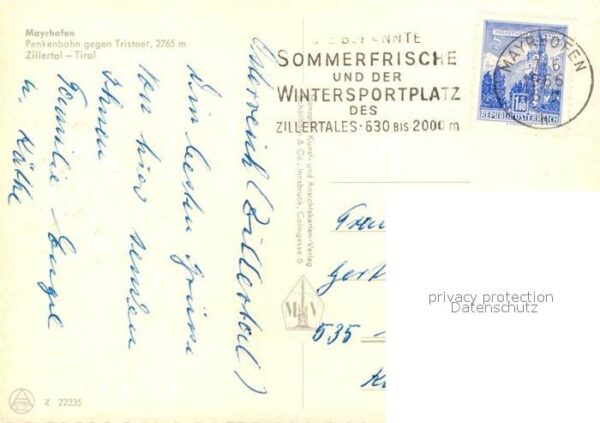 Mayrhofen
Penkenbahn gegen Tristner, 2765 m
Zillertal – Tirol
BEKANNTE
SOMMERFRISCHE
UND DER
WINTERSPORTPLATZ
DES
ZILLERTALES · 630 BIS 2000 m
MAYRHOFEN
1.80
REPUBLIK ÖSTERREICH
Österreich (Zillertal)
Die besten Grüße
von hier senden
Ihnen
Familie Engel
u. Käthe
Kunst- und Ansichtskarten-Verlag
& Co., Innsbruck, Colingasse 6
M V
535
privacy protection
Datenschutz
Z 22335